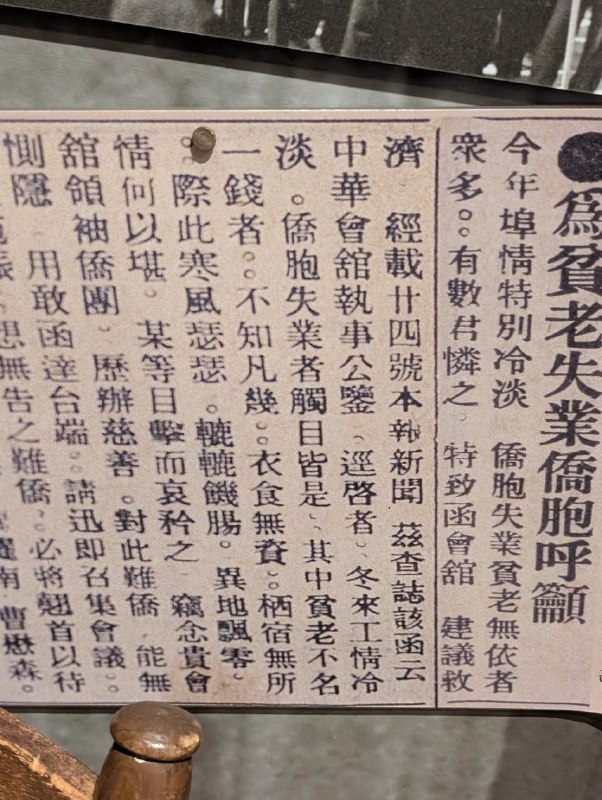 ●為貧老失業僑胞呼籲
今年埠情特別冷淡 僑胞失業貧老無依者
衆多。。有數君憐之 特致函會舘 建議救
濟 經載廿四號本報新聞 茲查誌該函云
中華會舘執事公鑒、逕啓者、冬來工情冷
淡。僑胞失業者觸目皆是、其中貧老不名
一錢者。。不知凡幾。。衣食無資。。栖宿無所
。際此寒風瑟瑟。轆轆饑腸。異地飄零。
情何以堪。某等目擊而哀矜之 竊念貴會
舘領袖僑團。歷辦慈善。對此難僑 能無
惻隱 用敢函達台端。。請迅即召集會議。。
無告之難僑。必將翹首以待
南 曹懋森。